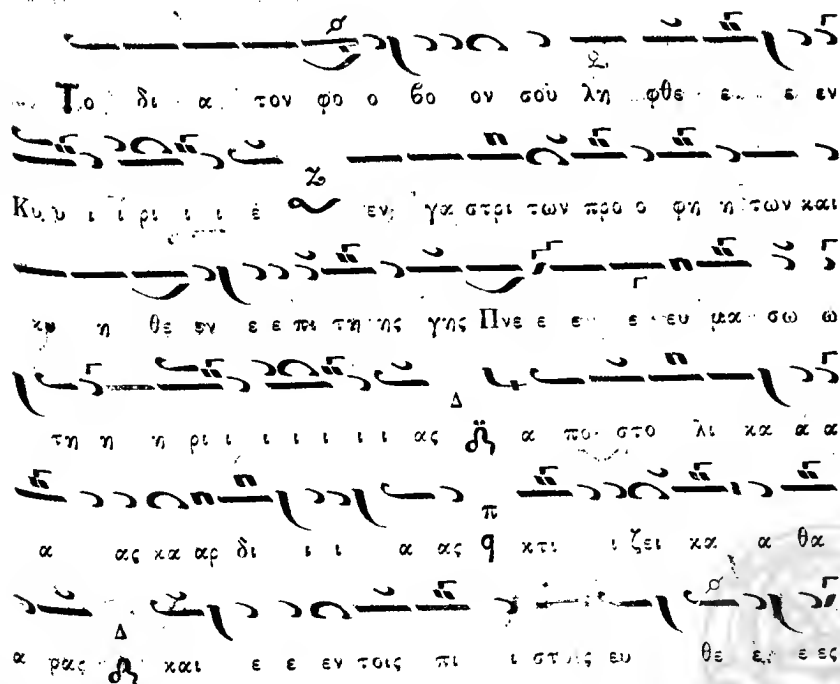 Το δι α τον φο ο βο ον σου λη φθε ε ε εν
Κυ υ ι ί ρι ι ι έ εν γα στρι των προ ο φη η των και
κυ η θε εν ε ε πι τη ης γης Πνε ε ε ε ευ μα σω ω
τη η η ρι ι ι ι ι ι ι ας Δ α πο στο λι κα ά α
α ας κα αρ δι ι ι α ας π q κτι ι ζει κα α θα
α ρας Δ και ε ε εν τοις πι ι στοις ευ θε ε ε ες